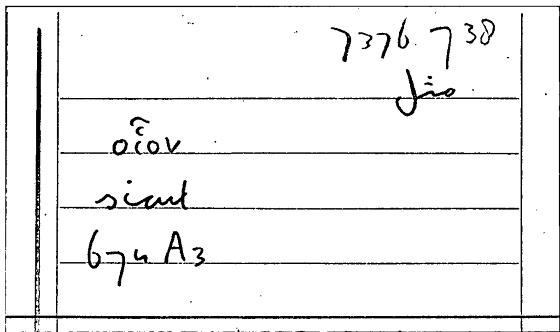 7376.738
οἷον
sicut
674 A3